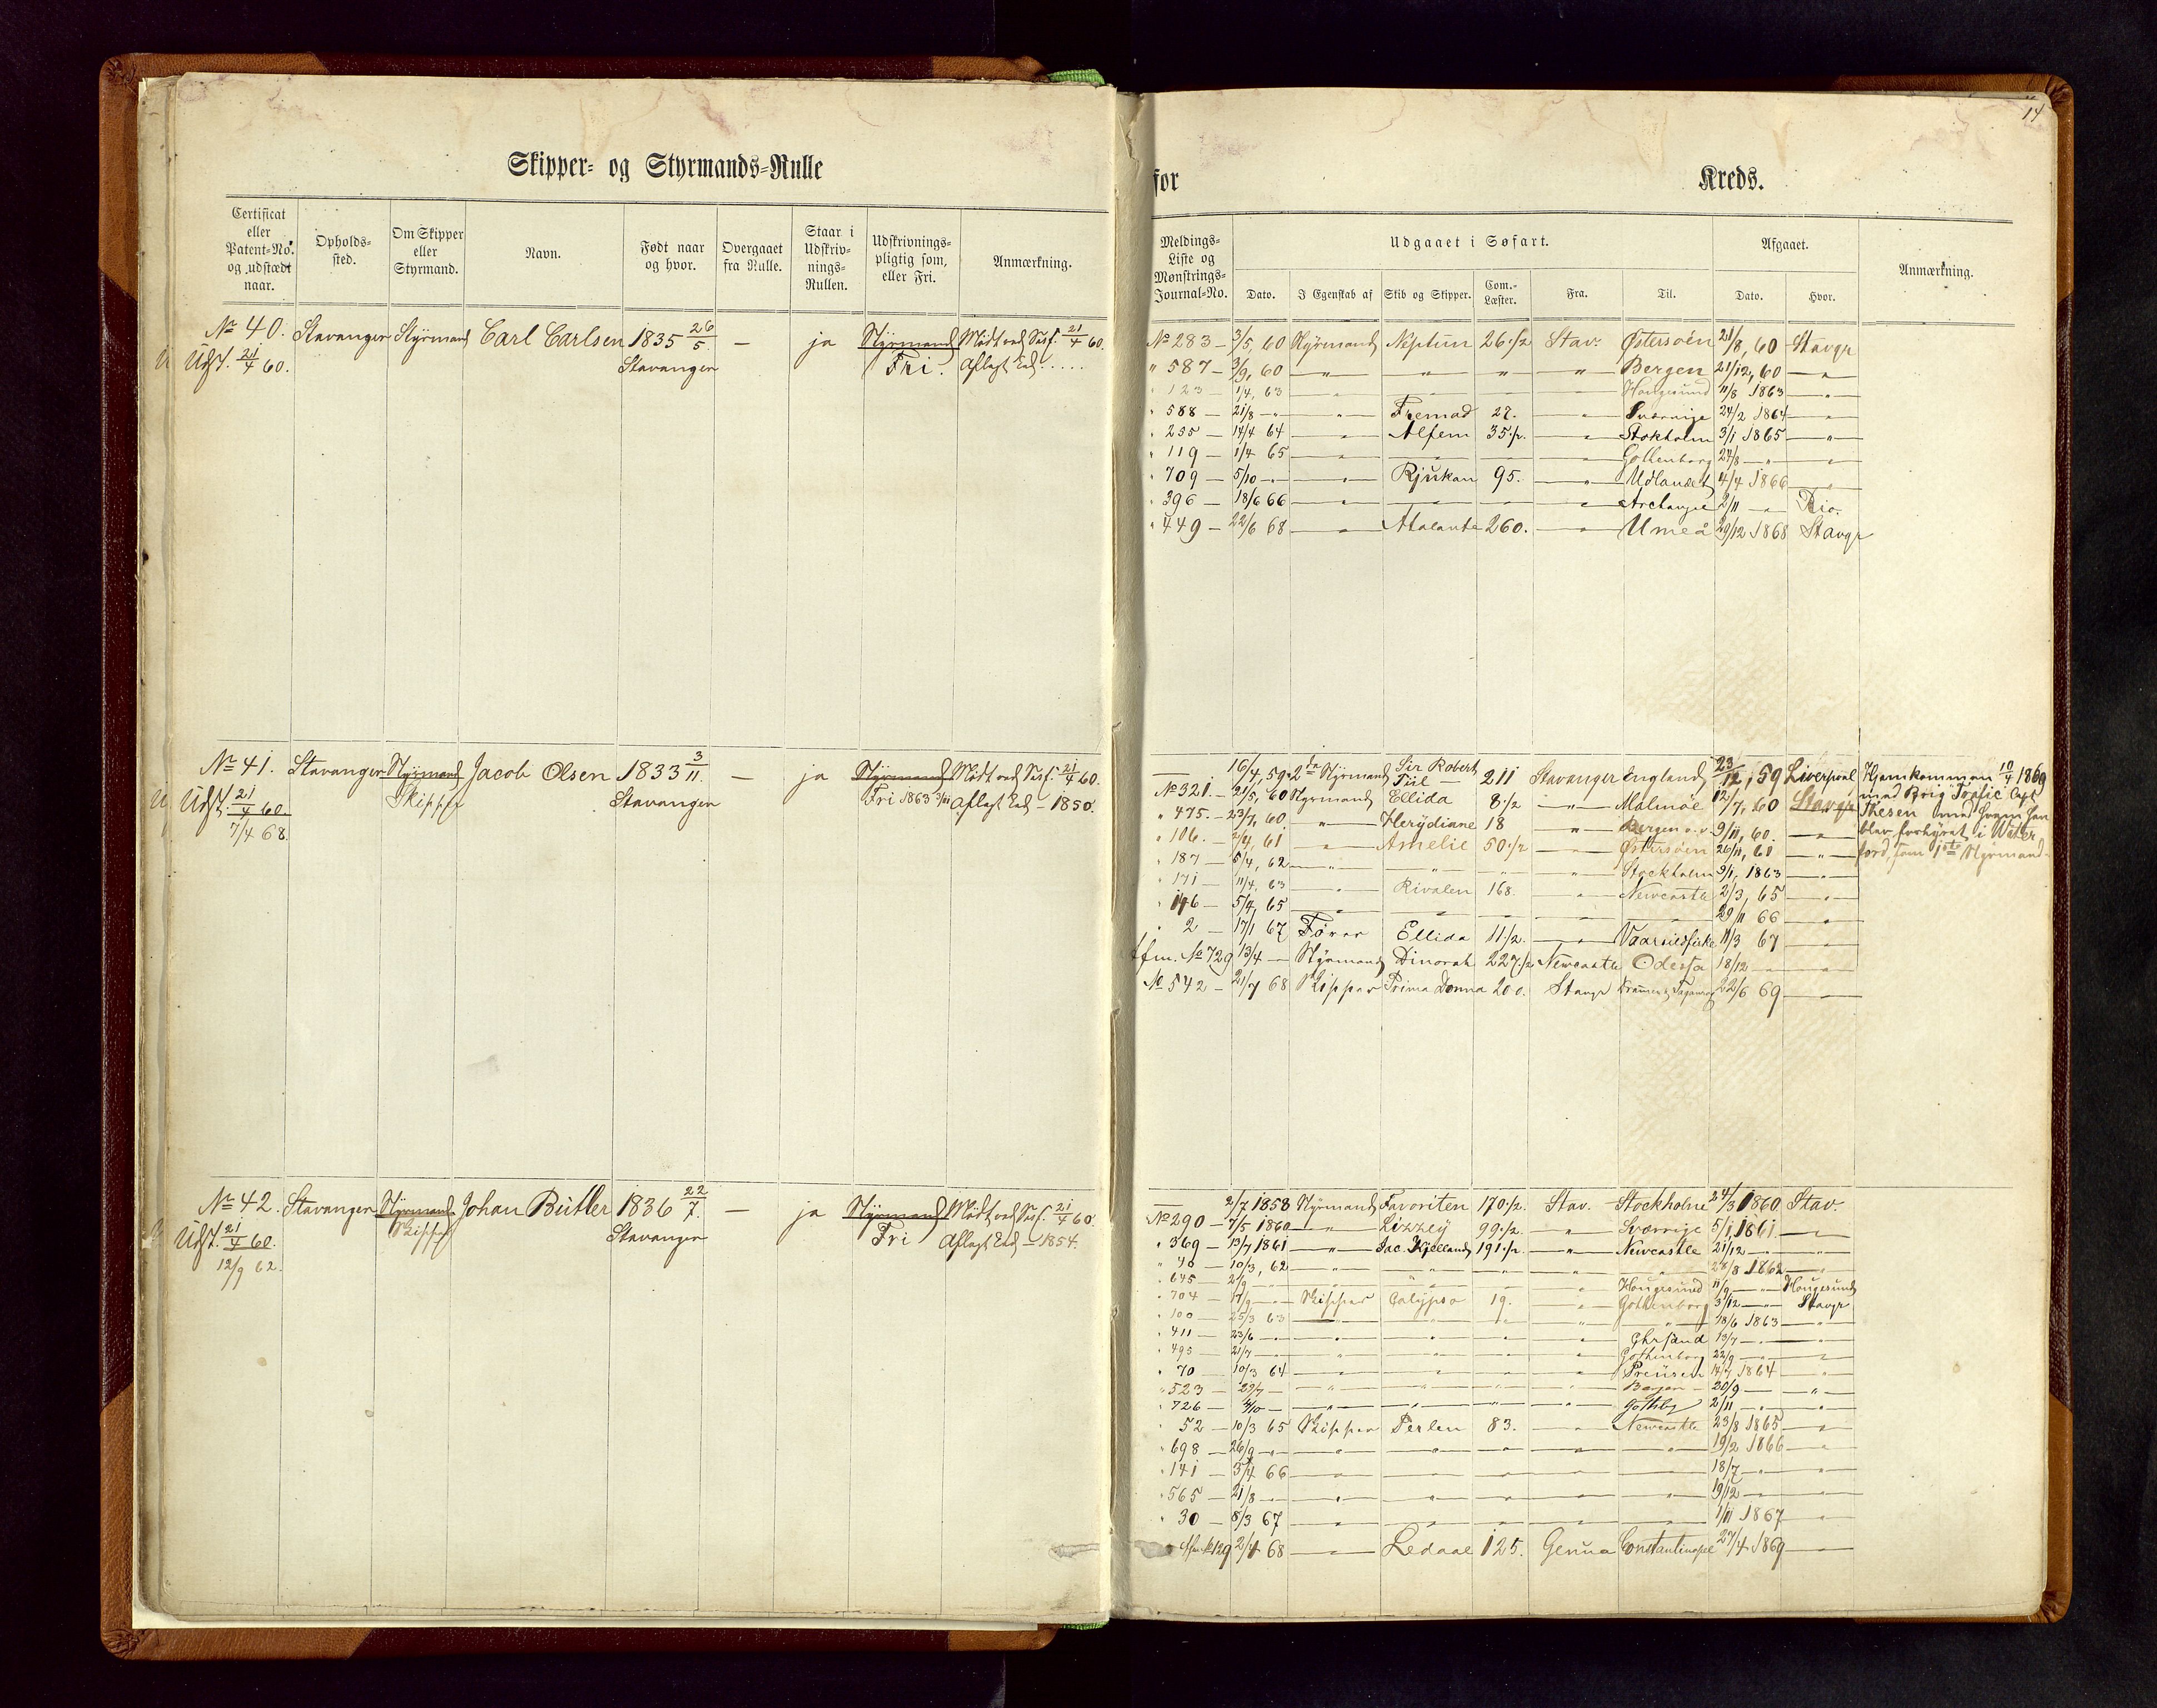 14
Skipper- og Styrmands-Rulle
for Kreds.
Certificat eller Patent-No. og udstædt naar.
Opholds-sted.
Om Skipper eller Styrmand.
Navn.
Født naar og hvor.
Overgaaet fra Rulle.
Staar i Udskriv-nings-Rullen.
Udskrivnings-pligtig som, eller Fri.
Anmærkning.
Meldings-Liste og Mønstrings-Journal-No.
Udgaaet i Søfart.
Dato. I Egenskab af Skib og Skipper. Com.-Læster. Fra. Til.
Afgaaet.
Dato. Hvor.
Anmærkning.
No 40. Stavanger Styrmand Carl Carlsen 1835 26/5. — ja Styrmand Mødt ved Sess. 21/4 60.
Udst. 21/4 60. Stavanger Fri. Aflagt Ed.....
No 283 — 3/5, 60 Styrmand Neptun 26 1/2 Stav. Østersøen 21/8, 60 Stavgr
" 587 — 3/9, 60 — " — " — " — " Bergen 21/12, 60 — " —
" 123 — 1/4, 63 — " — Hougesund 11/8 1863 — " —
" 588 — 21/8 — " — " — Fremad 27. — " — Sverrige 24/2 1864 — " —
" 235 — 14/4 64 — " — Alfen 35 1/2. — " — Stokholm 3/1 1865 — " —
" 119 — 1/4 65 — " — Gottenborg 24/8 — " — " —
" 709 — 5/10 — " — " — Rjukan 95. — " — Udlandet 4/4 1866 — " —
" 396 — 18/6 66 — " — Archangel 2/11 — " — Rio.
" 449 — 22/6 68 — " — Atalanta 260. — " — Umeå 29/12 1868 Stavgr
No 41. Stavanger Styrmand Jacob Olsen 1833 3/11. — ja Styrmand Mødt ved Sess. 21/4 60.
Udst. 21/4 60. Skipper Stavanger Fri 1863 3/11 Aflagt Ed — 1850.
7/4 68.
— 16/4, 59 2de Styrmand Sir Robert Piil 211 Stavanger England 23/12, 59 Liverpool
No 321. — 21/5, 60 Styrmand Ellida 8 1/2 — " — Malmøe 12/7, 60 Stavgr
" 475. — 23/7, 60 — " — Herydiane 18 — " — Bergen o.v. 9/11, 60 — " —
" 106. — 2/4, 61 — " — Amelie 50 1/2 — " — Østersøen 26/11, 61 — " —
" 187 — 5/4, 62 — " — " — " — " — Stockholm 9/1, 1863 — " —
" 171 — 11/4, 63 — " — Rivalen 168. — " — Newcastle 2/3, 65 — " —
" 146 — 5/4, 65 — " — 29/11 66 — " —
" 2 — 17/1 67 Fører Ellida 11 1/2. — " — Vaarsildfiske 11/3 67 — " —
Afm. No 729 13/4 — Styrmand Dinorah 227 1/2 Newcastle Odessa 18/12 — " —
No 542 — 21/7 68 Skipper Prima Donna 200. Stavgr 22/6 69 — " —
Hjemkommen 10/4 1869
med Brig Trafic Capt
Thesen med hvem han
blev forhyret i Water
ford, som 1ste Styrmand.
No 42. Stavanger Styrmand Johan Butler 1836 22/7. — ja Styrmand Mødt ved Sess. 21/4 60.
Udst. 21/4 60. Skipper Stavanger Fri Aflagt Ed — 1854.
12/9 62.
— 2/7 1858 Styrmand Favoriten 170 1/2. Stav. Stockholm 24/3 1860 Stav.
No 290 — 7/5 1860 — " — Lizzey 99 1/2. — " — Sverrige 5/1 1861 — " —
" 369 — 13/7 1861 — " — Jac. Kjelland 191 1/2 — " — Newcastle 21/12 — " —
" 40 — 10/3, 62 — " — " — " — " — " 28/8 1862 — " —
" 645 — 2/9 — " — Hougesund 11/9 — " — Hougesund
" 704 — 17/9 — " — Skipper Calypso 19. — " — Gottenborg 3/12 — " — Stavgr
" 100 — 25/3 63 — " — " — 18/6 1863 — " —
" 411 — 23/6 — " — " — " — Chrsand 13/7 — " —
" 495 — 21/7 — " — " — " — Gothenborg 22/9 — " —
" 70 — 10/3 64 — " — " — " — Preusen 14/7 1864 — " —
" 523 — 29/7 — " — " — " — Bergen — 20/9 — " —
" 726 — 4/10 — " — " — " — Gothbg 2/11 — " —
" 52 — 10/3 65 Skipper Perlen 83. — " — Newcastle 23/8 1865 — " —
" 698 — 26/9 — " — " — " — " — 19/2 1866 — " —
" 141 — 3/4 66 — " — " — 18/7 — " —
" 565 — 21/8 — " — " — " — 19/12 — " —
" 30 — 8/3 67 — " — " — 1/11 1867 — " —
Afm. No 129 2/4 68 — " — Ledaal 125. Genua Constantinopel 27/4 1869 — " —